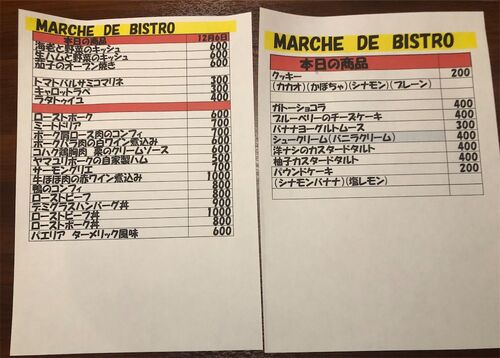 MARCHE DE BISTRO
本日の商品 12月6日
海老と野菜のキッシュ 600
生ハムと野菜のキッシュ 600
茄子のオーブン焼き 600
トマトバルサミコマリネ 300
キャロットラペ 300
ラタトゥイユ 400
ローストポーク 600
ミートドリア 700
ポーク肩ロース肉のコンフィ 700
ポークバラ肉の白ワイン煮込み 600
コハク鶏胸肉 栗のクリームソース 600
ヤマユリポークの自家製ハム 500
サーモングリエ 1000
牛ほほ肉の赤ワイン煮込み 1000
鴨のコンフィ 800
ローストビーフ 800
デミグラスハンバーグ丼 900
ローストビーフ丼 1000
ローストポーク丼 800
パエリア ターメリック風味 600
MARCHE DE BISTRO
本日の商品
クッキー 200
(カカオ)(かぼちゃ)(シナモン)(プレーン)
ガトーショコラ 400
ブルーベリーのチーズケーキ 400
バナナヨーグルトムース 300
シュークリーム(バニラクリーム) 400
洋ナシのカスタードタルト 400
柚子カスタードタルト 400
パウンドケーキ 200
(シナモンバナナ)(塩レモン)